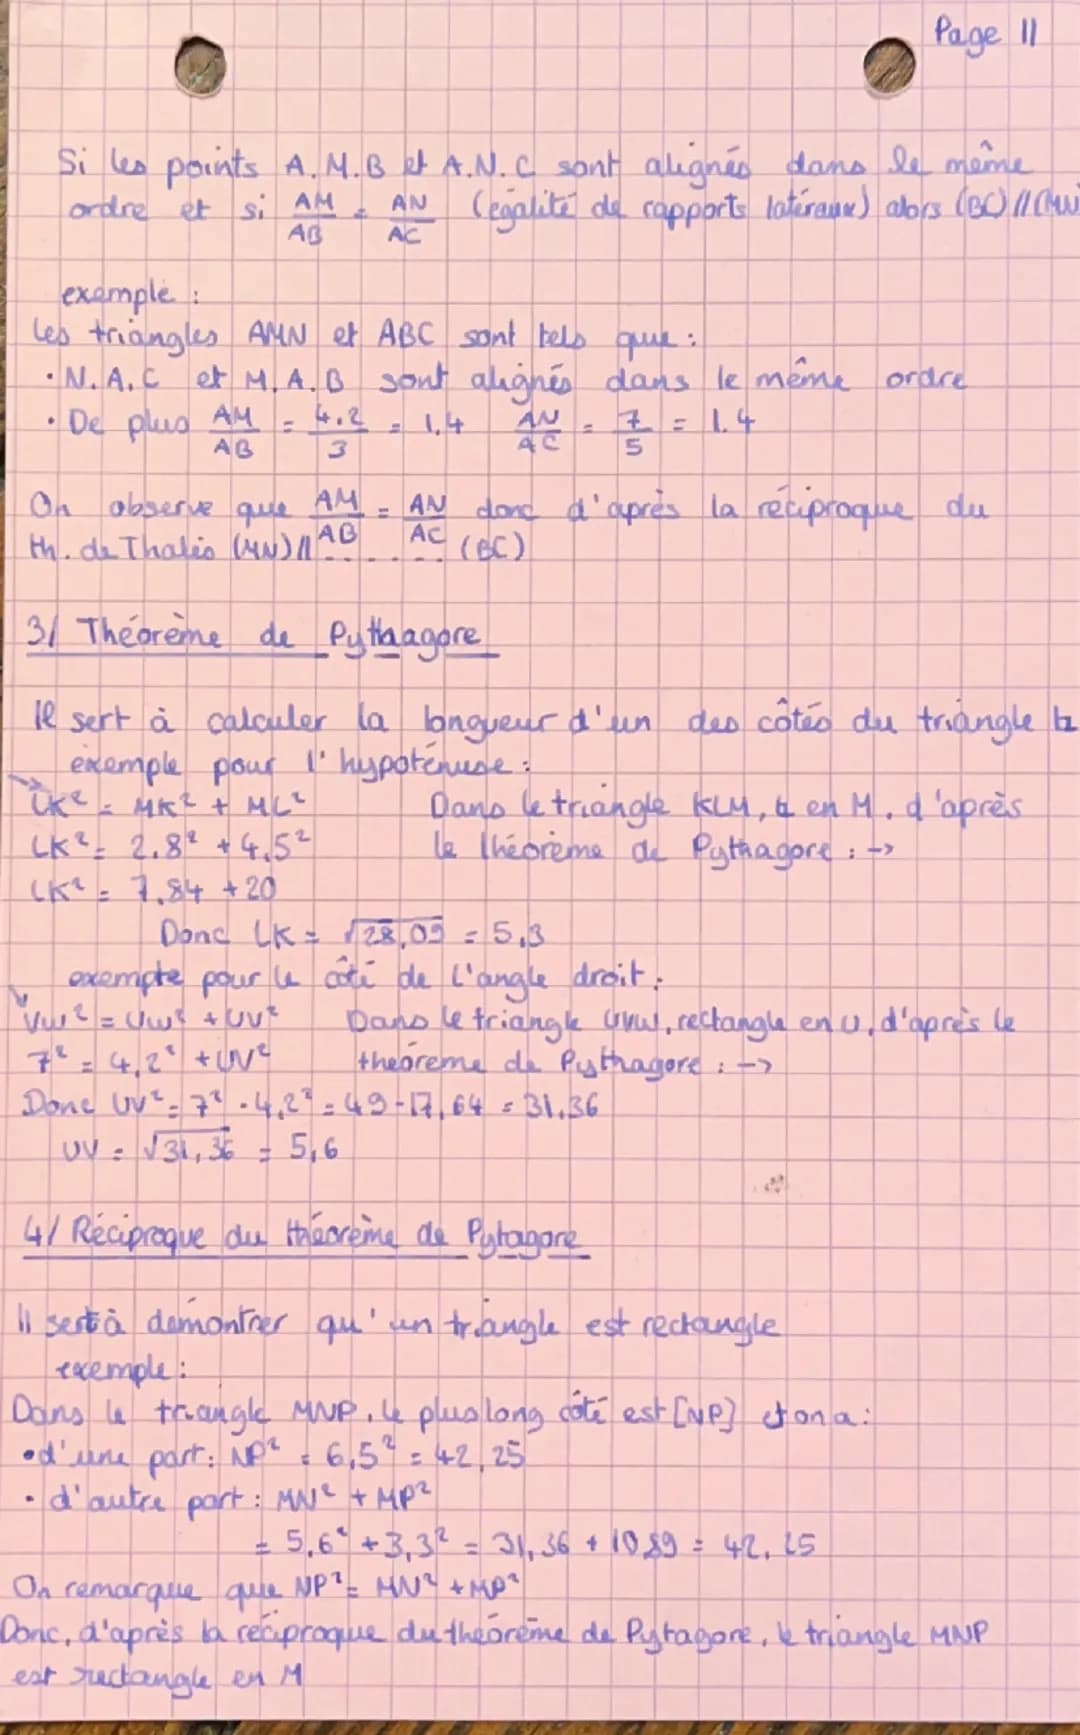 Page 11
Si les points A.M.B et A.N.C sont alignés dans le même
ordre et si AM/AB = AN/AC (égalité de rapports latéraux) alors (BC)//(MN
exemple :
Les triangles AMN et ABC sont tels que :
• N.A.C et M.A.B sont alignés dans le même ordre
• De plus AM/AB = 4.2/3 = 1,4 AN/AC = 7/5 = 1.4
On observe que AM/AB = AN/AC donc d'après la réciproque du
th. de Thalès (MN)// ....... (BC)
3/ Théorème de Pythaagore
Il sert à calculer la longueur d'un des côtés du triangle
exemple pour l'hypoténuse :
LK² = MK² + ML² Dans le triangle KLM, en M. d'après
LK² = 2.8² + 4,5² le théorème de Pythagore : ->
LK² = 7.84 + 20
Donc LK = √28,09 = 5,3
exempte pour le côté de l'angle droit :
VW² = UW² + UV² Dans le triangle UVW, rectangle en U, d'après le
7² = 4,2² + UV² théorème de Pythagore : ->
Donc UV² = 7² - 4,2² = 49 - 17,64 = 31,36
UV = √31,36 = 5,6
4/ Réciproque du théorème de Pytagore
Il sert à démontrer qu'un triangle est rectangle
exemple :
Dans le triangle MNP, le plus long côté est [NP] et on a :
• d'une part : NP² = 6,5² = 42,25
• d'autre part : MN² + MP²
= 5,6² + 3,3² = 31,36 + 10,89 = 42,25
On remarque que NP² = MN² + MP²
Donc, d'après la réciproque du théorème de Pytagore, le triangle MNP
est rectangle en M